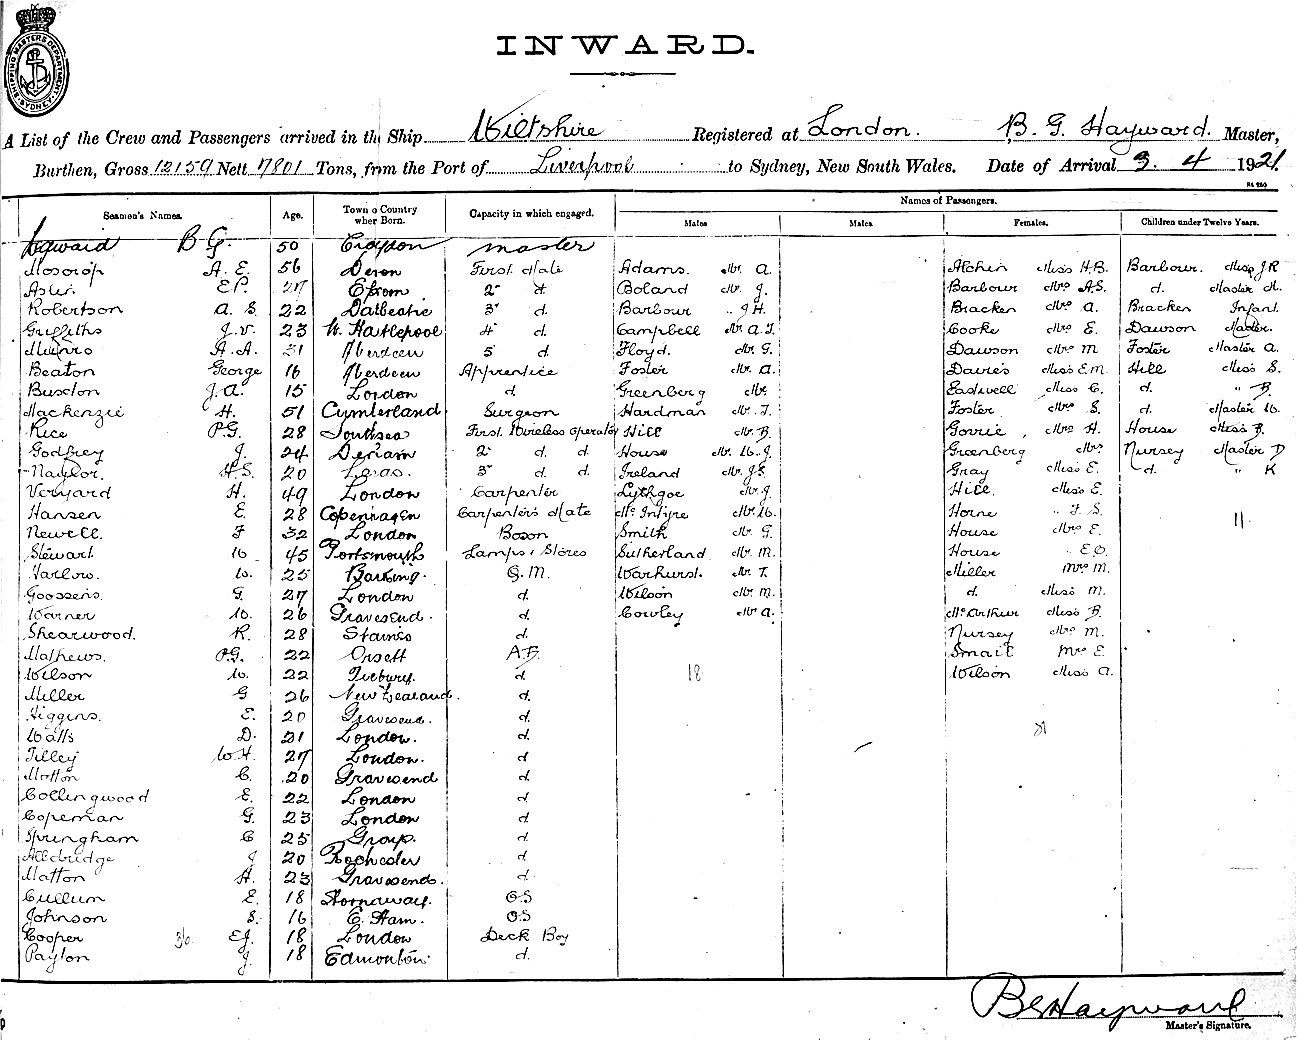 SHIPPING MASTERS DEPARTMENT SYDNEY
INWARD.
A List of the Crew and Passengers arrived in the Ship Wiltshire Registered at London. B. G. Hayward. Master,
Burthen, Gross 12159 Nett 7801 Tons, from the Port of Liverpool to Sydney, New South Wales. Date of Arrival 3. 4 1921
Names of Passengers.
Seamen's Names. Age. Town o Country wher Born. Capacity in which engaged. Males Males Females. Children under Twelve Years.
Hayward B G. 50 Croydon master
A. E. 56 Devon First Mate Adams. Mr. A. Miss H.B. Barbour. Miss J R
E.P. 27 Epsom 2d d Boland Mr. J. Barbour Mrs A.S. d. Master H.
Robertson A. S. 22 Dalbeatie 3d d. Barbour " J H. Bracken Mrs A. Bracken Infant.
Griffiths J.V. 23 W. Hartlepool 4th d. Campbell Mr A.J. Cooke Mrs E. Dawson Master.
Munro A. A. 31 Aberdeen 5 d. Floyd. Mr. G. Dawson Mrs M Foster Master A.
Beaton George 16 Aberdeen Apprentice Foster Mr. A. Davies Miss E.M. Hill Miss S.
Buxton J.A. 15 London d. Greenberg Mr. Eastwell Miss C. d. " B.
Mackenzie H. 51 Cumberland Surgeon Hardman Mr. J. Foster Mrs S. d. Master W.
Rice P.G. 28 Southsea First Wireless Operator Hill Mr. B. Gorrie, Mrs H. House Miss B.
Godfrey J. 24 2d d. d. House Mr. W. J. Greenberg Mrs Nursey Master D
Naylor. H.S. 20 3d d. d. Ireland Mr. J.S. Gray Miss E. d. " K
Veryard H. 49 London Carpenter Lythgoe Mr. J. Hill. Miss E.
Hansen E. 28 Copenhagen Carpenters Mate McIntyre Mr. W. Horne " J. S. 11
Newell. F 32 London Bosun Smith Mr. G. House Mrs E.
Stewart W 45 Portsmouth Lamps & Stores Sutherland Mr. M. House " E.O.
Harlow. W. 25 Barking. Q.M. Warhurst. Mr. T. Miller Mrs M.
Goossens. G. 27 London d. Wilson Mr. M. d. Miss M.
Warner W. 26 Gravesend. d. Cowley Mr A. McArthur Miss B.
Shearwood. R. 28 Staines d. Nursey Mrs M.
Mathews. P.G. 22 Orsett A.B. Smait Mrs E.
Wilson W. 22 d. 18 Wilson Miss A.
Miller G 26 New Zealand. d.
Higgins. E. 20 Gravesend. d. 21
Watts D. 21 London. d.
Tilley W.H. 27 London. d.
Motton C. 20 Gravesend d.
Collingwood E. 22 London d
Copeman G. 23 London d
Springham C 25 d.
Alldridge J 20 Rochester d
Matton H. 23 Gravesend. d.
Cullum E. 18 Stornaway. O.S
Johnson S. 16 E. Ham. O.S
Cooper 36 E.J. 18 London Deck Boy
Payton J. 18 Edmonton. d.
B G Hayward
Master's Signature.